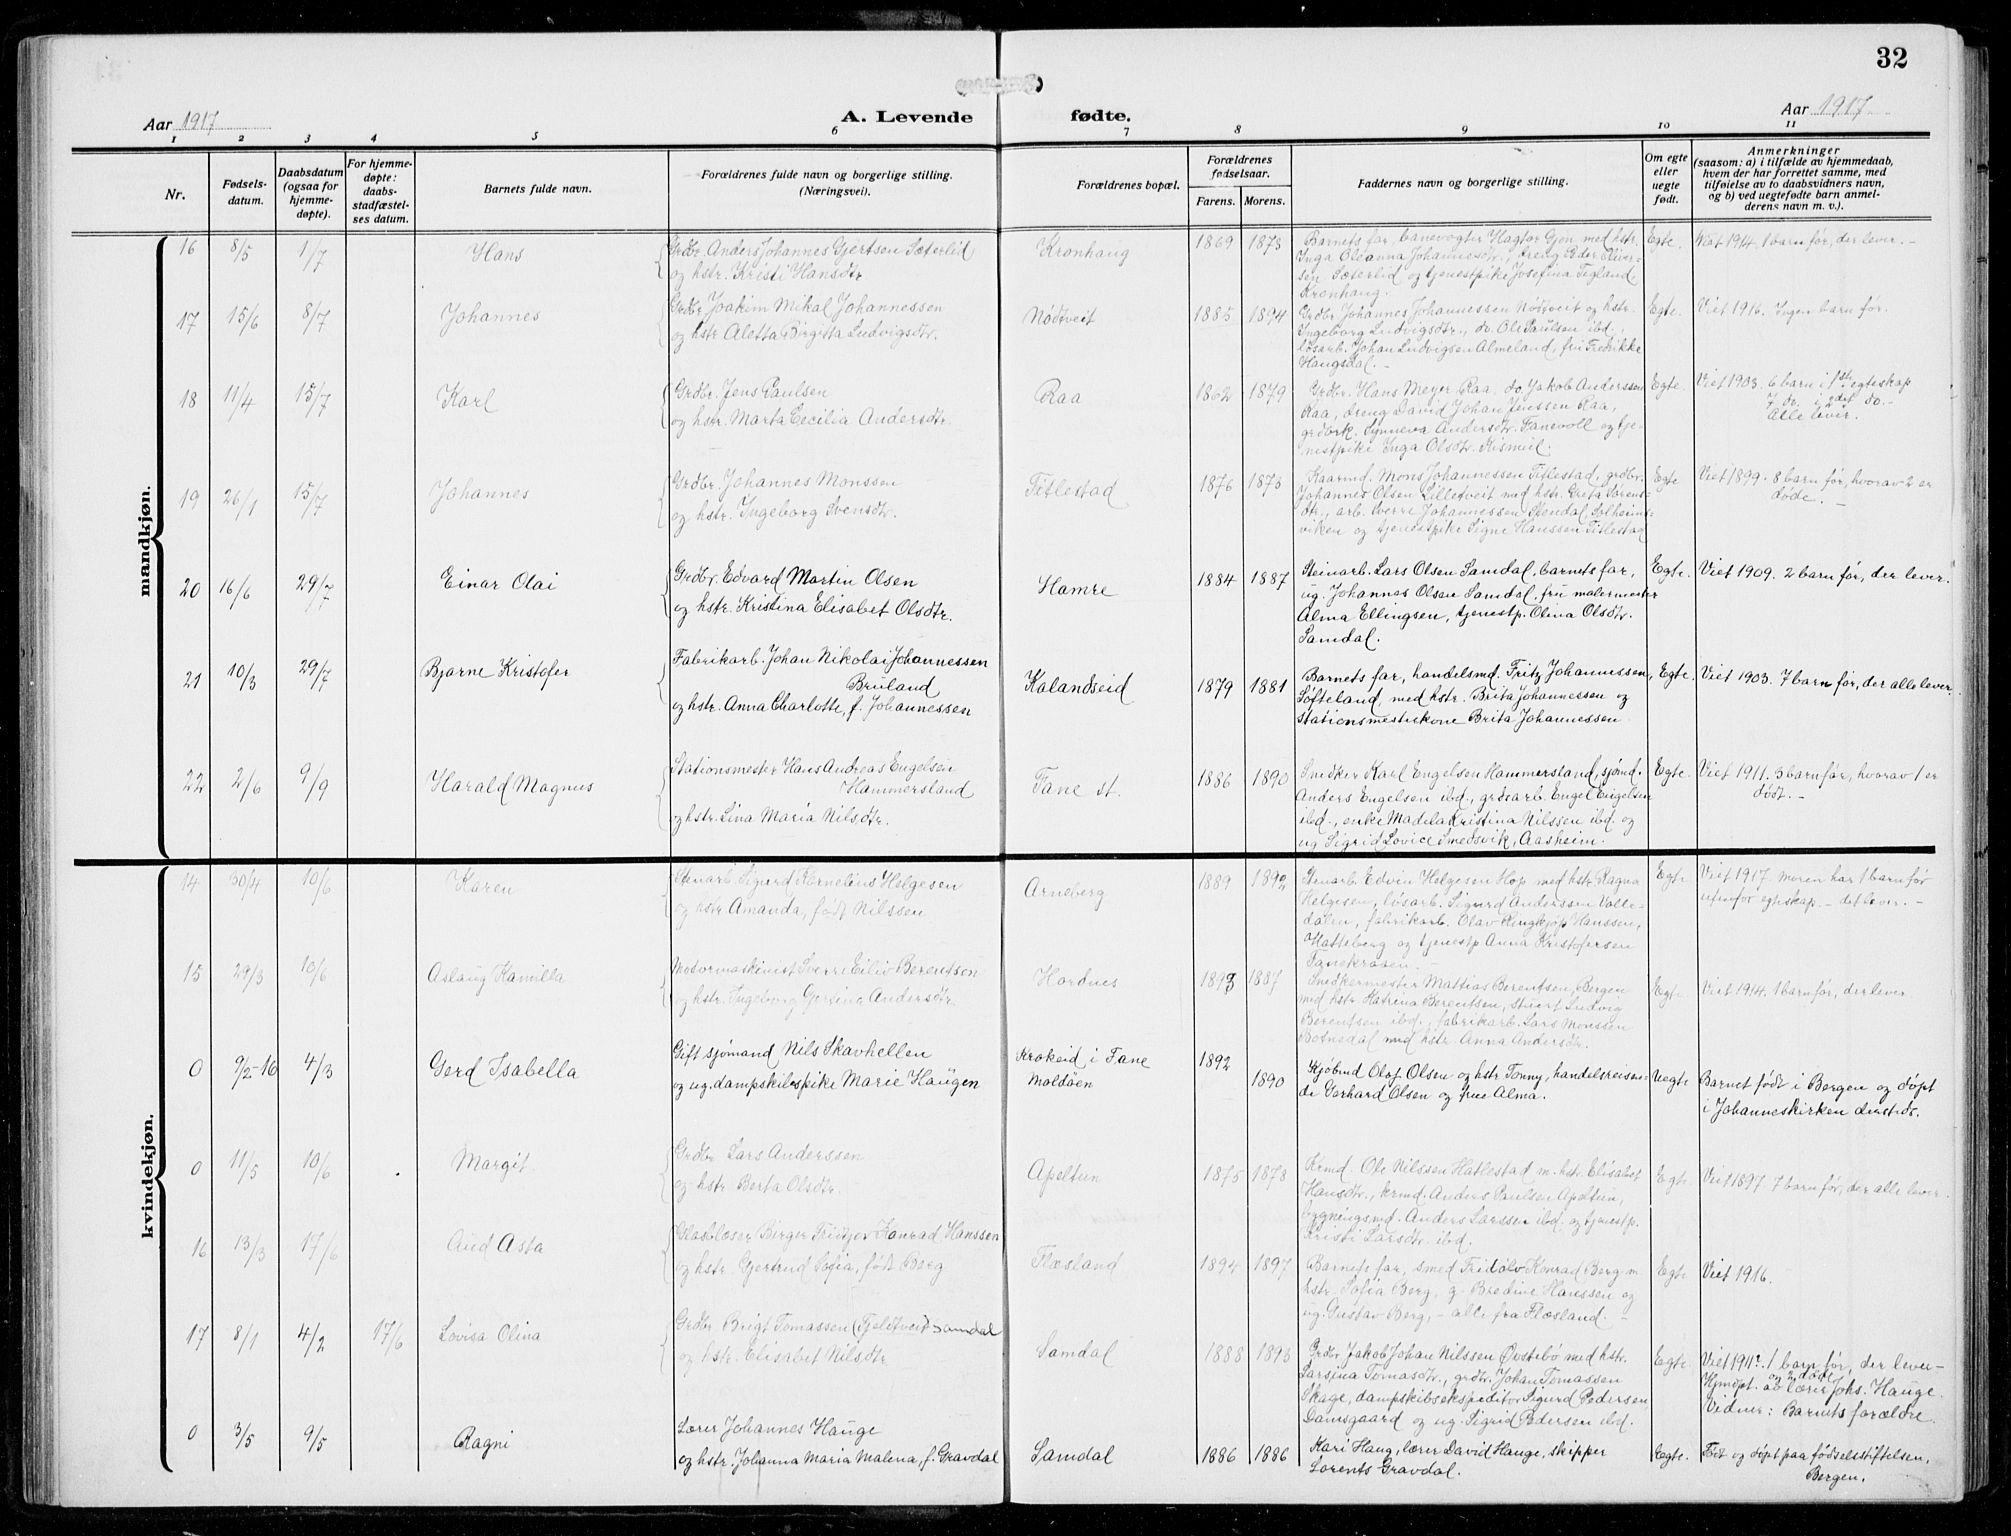 32
Aar 1917
A. Levende fødte.
Aar 1917
1 2 3 4 5 6 7 8 9 10 11
Nr.
Fødsels-
datum.
Daabsdatum
(ogsaa for
hjemme-
døpte).
For hjemme-
døpte:
daabs-
stadfæstel-
ses datum.
Barnets fulde navn.
Forældrenes fulde navn og borgerlige stilling.
(Næringsvei).
Forældrenes bopæl.
Forældrenes
fødselsaar.
Farens. Morens.
Faddernes navn og borgerlige stilling.
Om egte
eller
uegte
født.
Anmerkninger
(saasom: a) i tilfælde av hjemmedaab,
hvem der har forrettet samme, med
tilføielse av to daabsvidners navn,
og b) ved uegtefødte barn anmel-
derens navn m. v.).
mandkjøn.
16 8/5 1/7 Hans
Grdbr. Anders Johannes Gjertsen Sæterlid
og hstr. Kristi Hansdtr.
Kronhaug
1869 1873
Barnets far, banevogter Hagtor Gjøn med hstr.
Inga Oleanna Johannesdtr., dreng Peder Iver-
sen Sæterlid og tjenestpike Josefina Tegland
Kronhaug.
Egte.
Viet 1914. 1 barn før, der lever. -
17 15/6 8/7 Johannes
Grdbr. Joakim Mikal Johannessen
og hstr. Aletta Birgitta Ludvigsdtr.
Nødtveit
1885 1894
Grdbr. Johannes Johannessen Nødtveit og hstr.
Ingeborg Ludvigsdtr., do. Ole Paulsen ibd.,
løsarb. Johan Ludvigsen Almeland, fru Fredrikke
Haugsdal. -
Egte.
Viet 1916. Ingen barn før.
18 11/4 15/7 Karl
Grdbr. Jens Paulsen
og hstr. Marta Cecilia Andersdtr.
Raa
1862 1879
Grdbr. Hans Meyer Raa, do Jakob Anderssen
Raa, dreng David Johan Jenssen Raa,
grdbrk. Synneva Andersdtr. Fanevoll og tje-
nestpike Inga Olsdtr. Kismul.
Egte.
Viet 1903. 6 barn i 1ste egteskap
7 do. i 2det do. -
Alle lever.
19 26/1 15/7 Johannes
Grdbr. Johannes Monssen
og hstr. Ingeborg Svensdtr.
Titlestad
1876 1873
Kaarmd. Mons Johannessen Titlestad, grdbr.
Johannes Olsen Lilletveit med hstr. Greta Sørens-
dtr., arb. Sverre Johannessen Stendal Solheims-
viken og tjenestpike Signe Hanssen Titlestad
Egte
Viet 1899. 8 barn før, hvorav 2 er
døde. -
20 16/6 29/7 Einar Olai
Grdbr. Edvard Martin Olsen
og hstr. Kristina Elisabet Olsdtr.
Hamre
1884 1887
Steinarb. Lars Olsen Samdal, barnets far,
ug. Johannes Olsen Samdal, fru malermester
Alma Ellingsen, tjenestp. Olina Olsdtr.
Samdal.
Egte.
Viet 1909. 2 barn før, der lever.
21 10/3 29/7 Bjarne Kristofer
Fabrikarb. Johan Nikolai Johannessen
Brüland
og hstr. Anna Charlotte, f. Johannessen
Kalandseid
1879 1881
Barnets far, handelsmd. Fritz Johannessen,
Søfteland, med hstr. Brita Johannessen og
stationsmestrekone Brita Johannessen
Egte.
Viet 1903. 7 barn før, der alle lever.
22 2/6 9/9 Harald Magnus
Stationsmester Hans Andreas Engelsen
Hammersland
og hstr. Lina Maria Nilsdtr.
Fane st.
1886 1890
Snedker Karl Engelsen Hammersland, sjømd.
Anders Engelsen ibd., grdsarb. Engel Engelsen
ibd., enke Madela Kristina Nilssen ibd. og
ug Sigrid Lovice Smedsvik, Aasheim.
Egte.
Viet 1911. 3 barn før, hvorav 1 er
dødt. -
kvindekjøn.
14 30/4 10/6 Karen
Stenarb. Sigurd Kornelius Helgesen
og hstr Amanda, født Nilssen
Arneberg
1889 1892
Stenarb. Edvin Helgesen Hop med hstr Ragna
Helgesen, løsarb. Sigurd Anderssen Volle-
dalen, fabrikarb. Olav Ringkjøp Hanssen,
Hatteberg og tjenestp Anna Kristofersen
Fanekraaen. -
Egte
Viet 1917. moren har 1 barn før
utenfor egteskap. - det lever. -
15 29/3 10/6 Aslaug Kamilla
Motormaskinist Sverre Eiliv Berentsen
og hstr. Ingeborg Gersine Andersdtr.
Hordnes
1893 1887
Snedkermester Mattias Berentsen, Bergen
med hstr Katrina Berentsen, stuert Ludvig
Berentsen ibd., fabrikarb. Lars Monssen
Botnedal med hstr. Anna Andersdtr.
Egte
Viet 1914. 1 barn før, der lever
0 9/2-16 4/3 Gerd Isabella
Gift sjømand Nils Skavhellen
og ug. dampskibspike Marie Haugen
Krokeid i Fane
Moldøen
1892
1890
Kjøbmd Olaf Olsen og hstr Tonny, handelsreisen-
de Gerhard Olsen og frue Alma.
Uegte
Barnet født i Bergen og døpt
i Johanneskirken dersteds.
0 11/5 10/6 Margit
Grdbr Lars Anderssen
og hstr Berta Olsdtr.
Apeltun
1875 1878
Krmd. Ole Nilssen Hatlestad m. hstr. Elisabet
Hansdtr., krmd. Anders Paulsen Apeltun,
bygningsmd. Anders Larssen ibd. og tjenestp.
Kristi Larsdtr. ibd.
Egte.
Viet 1897. 7 barn før, der alle lever.
16 13/3 17/6 Aud Asta
Glasblæser Birger Fridtjov Konrad Hanssen
og hstr. Gjertrud Sofia, født Berg
Flæsland
1894 1897
Barnets far, smed Fridolv Konrad Berg m.
hstr. Sofia Berg, g. Bredine Hanssen og
ug. Gustav Berg, - alle fra Flæsland. -
Egte
Viet 1916.
17 8/1 4/2 17/6 Lovisa Olina
Grdbr. Brigt Tomassen (Tjeldtveit Samdal
og hstr. Elisabet Nilsdtr
Samdal
1888 1893
Grdbr Jakob Johan Nilssen Øvstebø med hstr.
Larsina Tomasdtr., grdbr. Johan Tomassen
Skage, dampskibsekspeditør Sigurd Pedersen
Damsgaard og ug. Sigrid Pedersen ibd.
Egte.
Viet 1911. 1 barn før, der lever -
og 2 døde
Hjmdøpt. av lærer Johs. Hauge.
Vidner: Barnets forældre.
0 3/5 9/5 Ragni
Lærer Johannes Hauge
og hstr. Johanna Maria Malena, f. Gravdal
Samdal
1886 1886
Kari Haug, lærer David Hauge, skipper
Lorents Gravdal.
Egte.
Født og døpt paa fødselsstiftelsen,
Bergen.